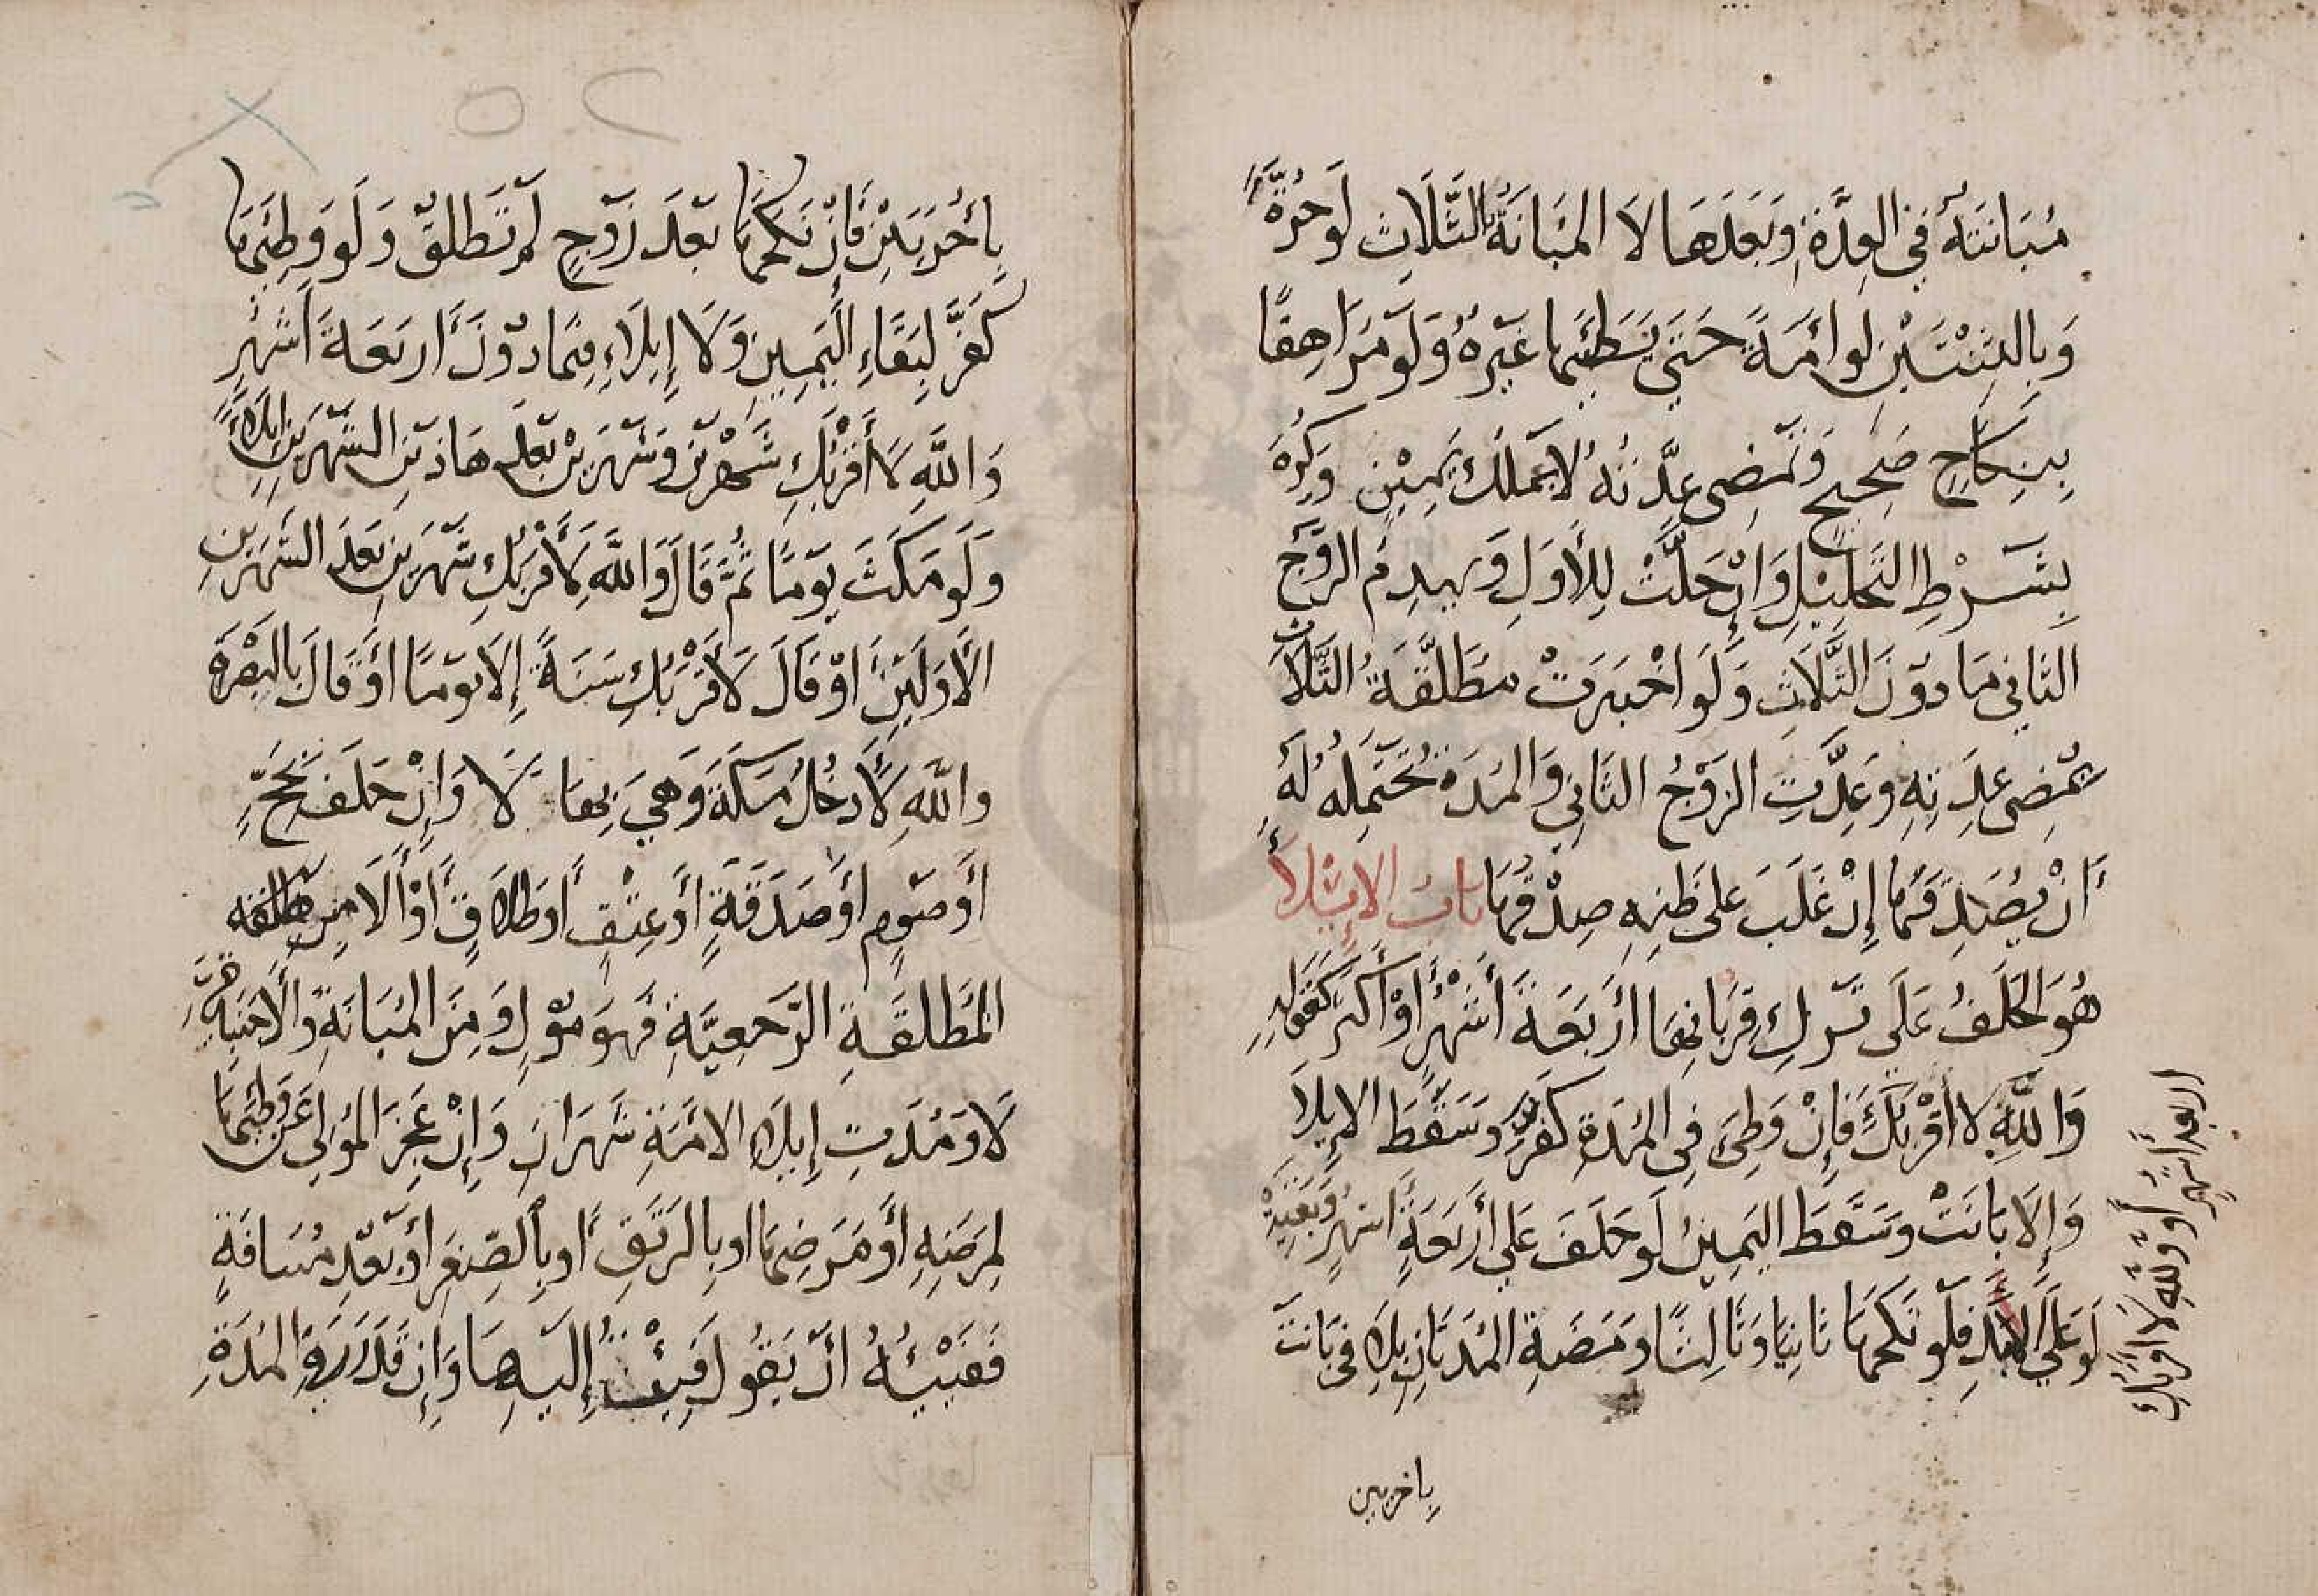 مُبَانَتَهُ فِي العِدَّةِ وَبَعْدَهَا لَا المُبَانَةُ بِالثَّلَاثِ لَوْ حُرَّةً
وَبِالثِّنْتَيْنِ لَوْ أَمَةً حَتَّي يَطَئَهَا غَيْرُهُ وَلَوْ مُرَاهِقًا
بِنِكَاحٍ صَحِيحٍ وَتَمْضِى عِدَّتُهُ لَا بِمِلْكِ يَمِيْنٍ وَكُرِهَ
بِشَرْطِ التَّحْلِيْلِ وَإِنْ حَلَّتْ لِلْأَوَلِ وَيهدِمُ الزَّوْجُ
الثَّانِي مَا دُوْنَ الثَّلَاثِ وَلَوْ اخْبَرَتْ مُطَلَّقَةُ الثَّلَاثِ
بِمُضِى عِدَتِهِ وَعِدَّتِ الزَوْجُ الثَانِي وَالمُدَةُ تَحْتَمِلُه لَهُ
أَنْ يُصَدِقَهَا إِنْ غَلَبَ عَلى ظَنِهِ صِدْقُهَا بَابُ الإِيْلَاَءِ
هُوَ الحَلْفُ عَلَي تَرْكِ قِرْبَانِهَا أَرْبَعَةَ أَشْهُرٍ أَوْ أَكْثَرَ كَقَوْلِهِ
وَاللَّهِ لَا أَقْرَبُكَ فَإِنْ وَطِئَ فِى المُدَةِ كَفَّرَ وَسَقَطَ الإِيلَا
وَإِلَا بَانَتْ وَسَقَطَ اليَمِيْنُ لَوْ حَلَفَ عَلَي أَرْبَعَةِ اشهُرٍ وَبَقِيَتْ
لَوْ عَلَي الأَبَدِ فَلَوْ نَكَحَهَا ثَانِيًا وَثَالِثًا وَمَضَةِ المُدَتَانِ بِلَا فَىْ بَانَتْ
اربعة أشهر أو والله لا أقربك
باخريين
بِأُخْرَيَيْنِ فَإِنْ نَكَحَهَا بَعْدَ زَوْجٍ لَمْ تَطْلُقْ وَلَوْ وَطِئَهَا
كَفَّرَ لِبَقَاءِ اليَمِيْنِ وَلَا إِيلَاءِ فِيْمَا دُوْنَ أَرْبَعَةَ أَشْهُرٍ
وَاللَّهِ لَا أَقْرَبُكِ شَهْرَيْنِ وَشَهْرَيْنِ بَعْدَ هَاذَيْنِ الشَهْرَيْنِ إِيلَاءٌ
وَلَوْ مَكَثَ يَوْمًا ثُمَّ قَالَ وَاللَّهِ لَا أَقْرَبُكِ شَهْرَيْنِ بَعْدَ الشَهْرَيْنِ
الأَوَلَيْنِ أَوْ قَالَ لَا أَقْرَبُكِ سَنَةً إِلَا يَوْمًا أَوْ قَالَ بِالبَصْرَةِ
وَاللَّهِ لَا أَدْخُلُ مَكَةَ وَهِيَ بِهَا لَا وَإِنْ حَلَفَ بِحَجٍّ
أَوْ صَوْمٍ أَوْ صَدَقَةٍ أَوْ عِتْقٍ أَوْ طَلَاقٍ أَوْ أَلَا مِنَ
المُطَلقَةِ الرَّجْعِيَّةِ فَهُوَ مُوْلٍ وَمِنَ المُبَانَةِ وَالأَجْنَبِيَّةِ
لَا وَمُدَتِ إِيلَاءِ الأَمَةِ شَهْرَانِ وَإِنْ عَجِزَ المُوْلِى عَنْ وَطِئِهَا
لِمَرَضِهِ أَوْ مَرَضِهَا أَوْ بِالرَتَقِ أَوْ بِالصِّغَرِ أَوْ بُعْدِ مُسَافَةٍ
فَفَيْئُهُ أَنْ يَقُولَ فَيْئْتُ إِلَيْهَا وَإِنْ قَدَرَ فِي المُدَةِ